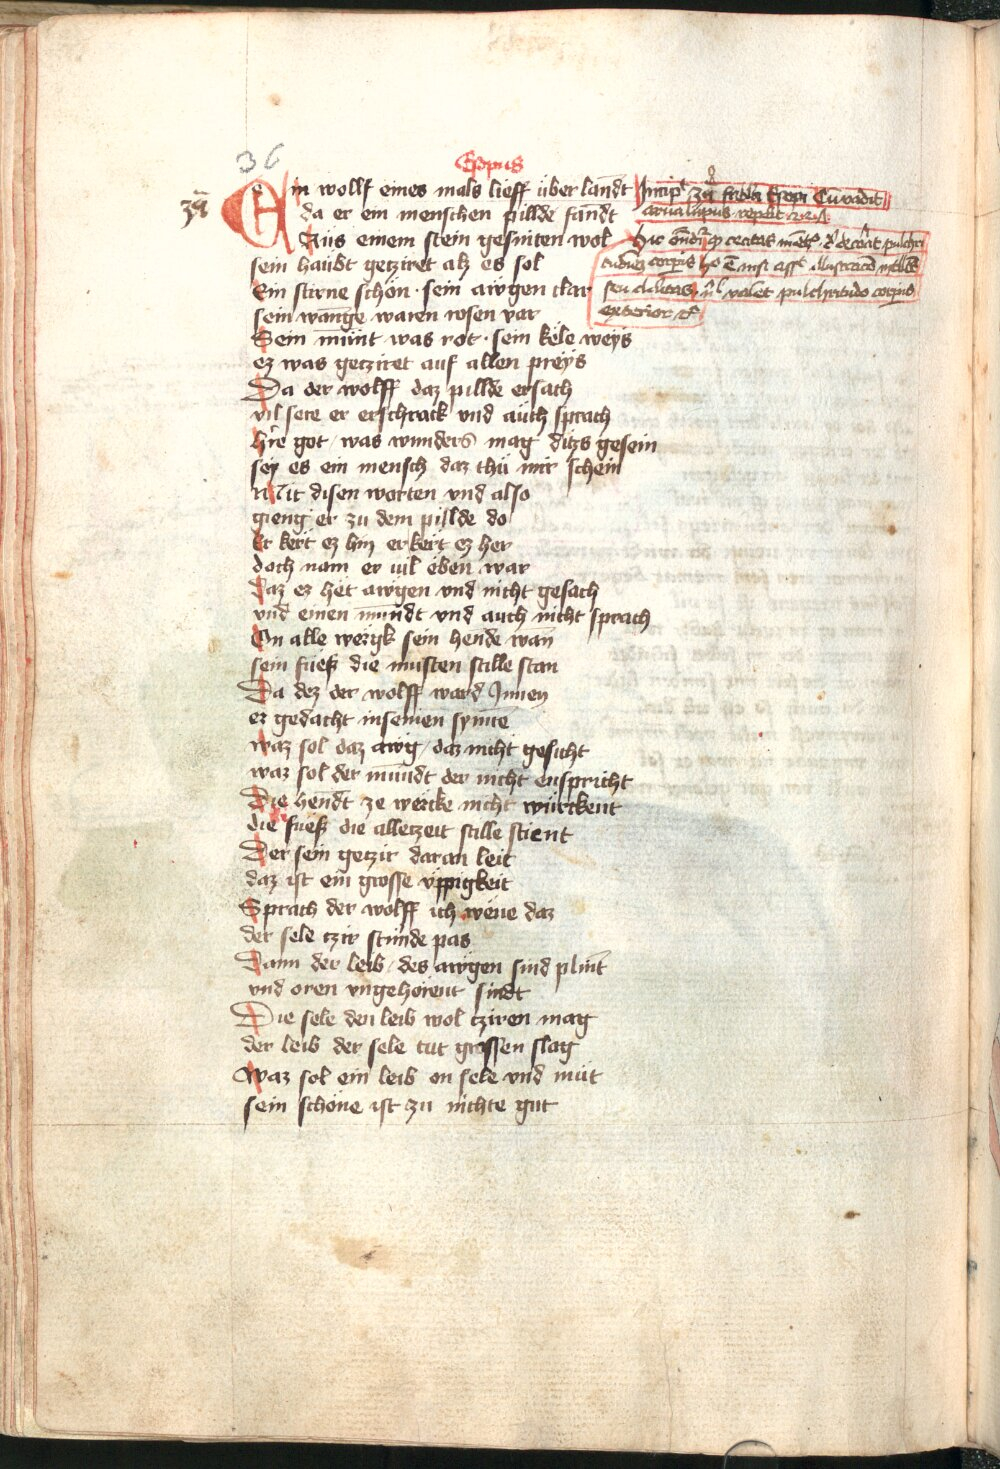 36
Esopus
Ein wollf eines mals lieff über landt
da er ein menschen pillde fandt
Aüs einem stein gesniten wol
sein haübt getziret alz es sol
Ein stirne schön · sein awgen clar
sein wange waren rosen var
Sein münt was rot · sein kele weÿs
ez was getziret auf allen preÿs
Da der wolff daz pillde ersach
vil sere er erschrack vnd aüch sprach
h're got / was wunders mag ditzs gesein
seÿ es ein mensch daz thü mir schein
Mit disen worten vnd also
gieng er zu dem pillde do
Er kert ez hin er kert ez her
doch nam er vil eben war
Daz ez het awgen vnd nicht gesach
vnd einen mundt vnd auch nicht sprach
On alle wergk sein hende warn
sein füeß die musten stille stan
Da dez der wolff ward Innen
er gedacht in seinen synne
waz sol daz awg / daz nicht gesicht
waz sol der mundt der nicht enspricht
Die hendt ze wercke nicht würckent
die füeß die alletzeit stille stient
Der sein getzir daran leit
daz ist ein grosse üppigkeit
Sprach der wolff ich wene daz
der sele tzir stünde pas
Dann der leib / des awgen sind plint
vnd oren vngehörent sindt
Die sele den leib wol tziren mag
der leib der sele tut grossen slag
Waz sol ein leib on sele vnd müt
sein schöne ist zu nichte gut
Incip't 34 fabla Esopi Cū vadit
arua lupus rep'it
seu valet pulchritudo corporis
exterior